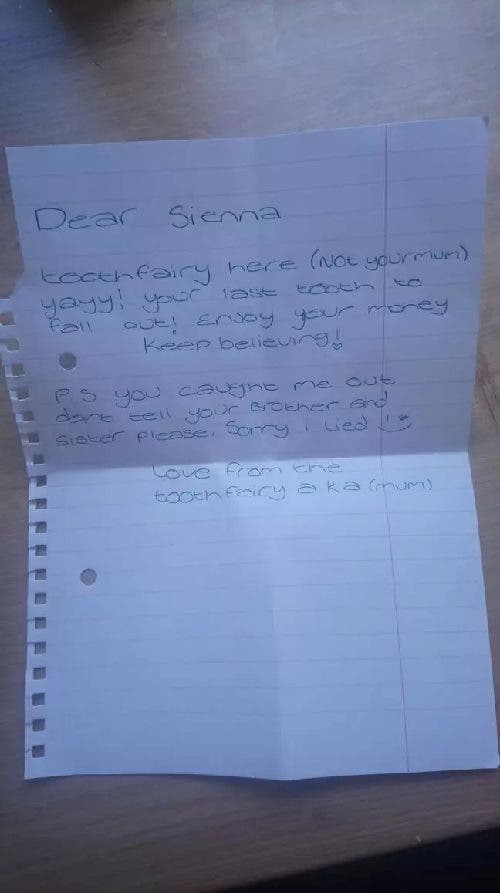 Dear Sienna
toothfairy here (Not your mum)
yayy! your last tooth to
fall out! Enjoy your money
Keep believing!
PS you caught me out
dont tell your Brother and
sister please. Sorry i lied
Love from the
toothfairy a k a (mum)